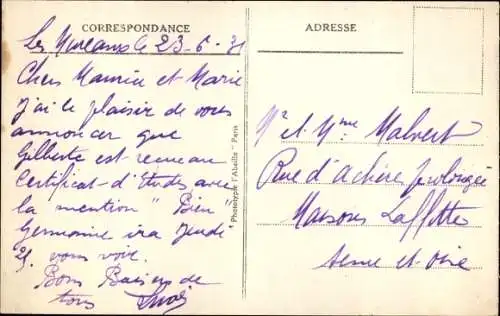 CORRESPONDANCE
Les Mureaux le 23-6-31
Chers Maurice et Marie
J'ai le plaisir de vous
annoncer que
Gilberte est reçue au
Certificat-d'Etudes avec
la mention "Bien"
Germaine ira Jeudi
25 vous voir.
Bons Baisers de
tous
"Phototypie l'Abeille" Paris
ADRESSE
Mr et Mme Malvert
Rue d'Achère prolongée
Maisons Laffitte
Seine et Oise